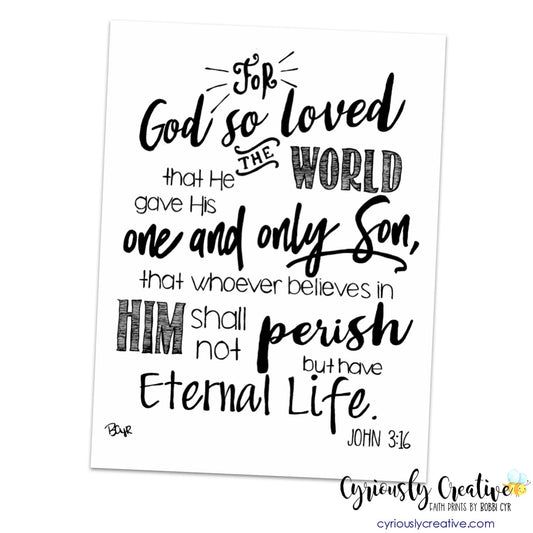 FOR
God so loved
THE WORLD
that He
gave His
one and only Son,
that whoever believes in
HIM shall
not perish
but have
Eternal Life.
JOHN 3:16
BCyR
Cyriously Creative
FAITH PRINTS BY BOBBI CYR
cyriouslycreative.com